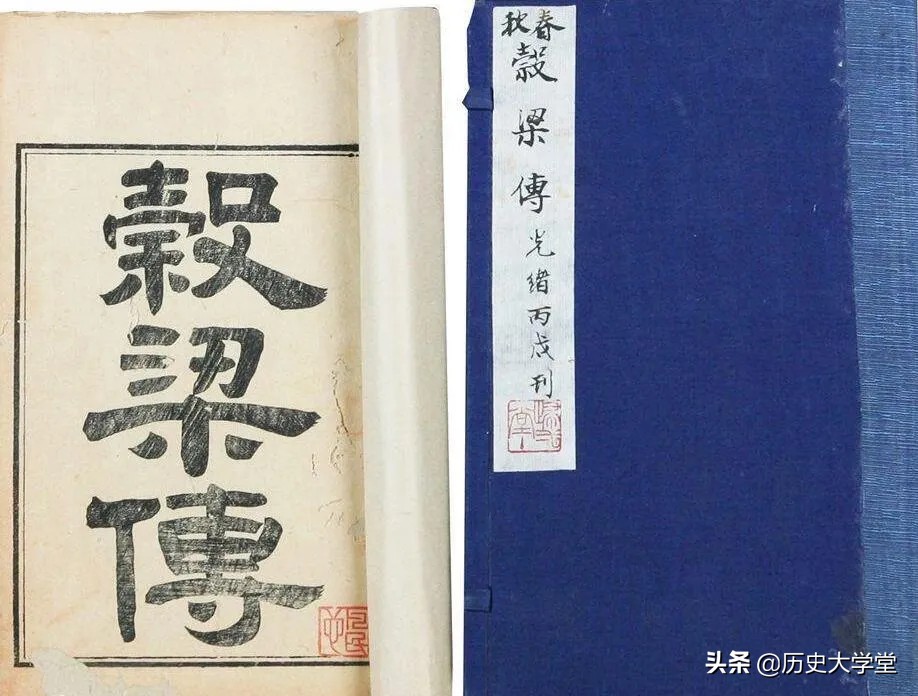 穀梁傳
春秋
穀梁傳
光緒丙戌刊
头条 @历史大学堂